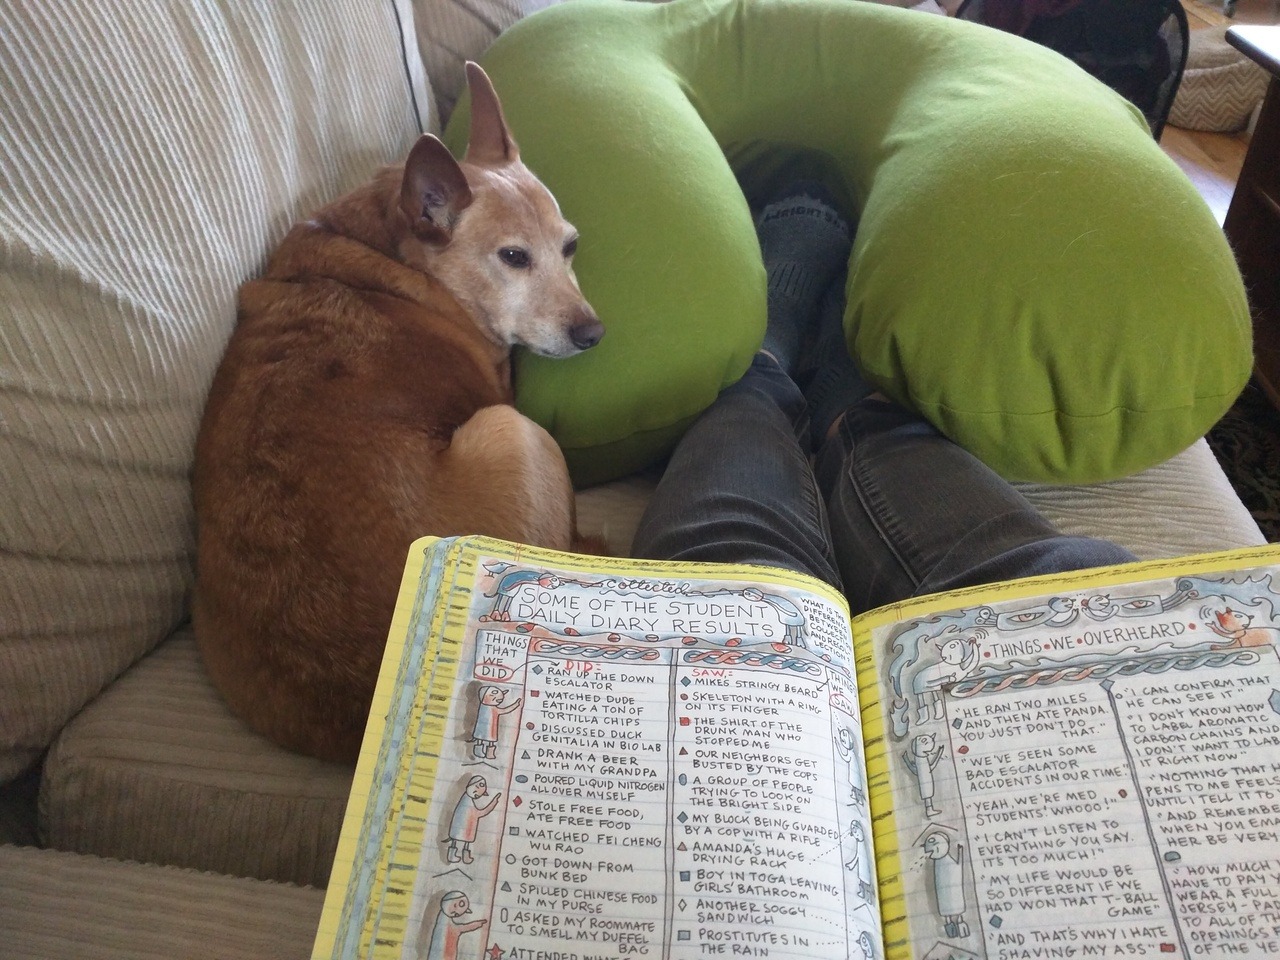 WRIGHT SO
collected
SOME OF THE STUDENT
DAILY DIARY RESULTS
WHAT IS THE
DIFFERENCE
BETWEEN
THINGS
THAT
WE
DID
DID:
RAN UP THE DOWN
ESCALATOR
WATCHED DUDE
EATING A TON OF
TORTILLA CHIPS
DISCUSSED DUCK
GENITALIA IN BIO LAB
DRANK A BEER
WITH MY GRANDPA
POURED LIQUID NITROGEN
ALL OVER MYSELF
STOLE FREE FOOD,
ATE FREE FOOD
WATCHED FEI CHENG
WU RAO
GOT DOWN FROM
BUNK BED
SPILLED CHINESE FOOD
IN MY PURSE
ASKED MY ROOMMATE
TO SMELL MY DUFFEL
BAG
ATTENDED
SAW:
THINGS
WE
SAW
MIKES STRINGY BEARD
SKELETON WITH A RING
ON ITS FINGER
THE SHIRT OF THE
DRUNK MAN WHO
STOPPED ME
OUR NEIGHBORS GET
BUSTED BY THE COPS
A GROUP OF PEOPLE
TRYING TO LOOK ON
THE BRIGHT SIDE
MY BLOCK BEING GUARDED
BY A COP WITH A RIFLE
AMANDA'S HUGE
DRYING RACK
BOY IN TOGA LEAVING
GIRLS' BATHROOM
ANOTHER SOGGY
SANDWICH
PROSTITUTES IN
THE RAIN
THINGS WE OVERHEARD
HE RAN TWO MILES
AND THEN ATE PANDA.
YOU JUST DON'T DO...
"WE'VE SEEN SOME
BAD ESCALATOR
ACCIDENTS IN OUR TIME."
"YEAH, WE'RE MED
STUDENTS! WHOOO!"
"I CAN'T LISTEN TO
EVERYTHING YOU SAY.
IT'S TOO MUCH!"
"MY LIFE WOULD BE
SO DIFFERENT IF WE
HAD WON THAT T-BALL
GAME"
"AND THAT'S WHY I HATE
SHAVING MY ASS"
"I CAN CONFIRM THAT
HE CAN SEE IT"
"I DON'T KNOW HOW
TO LABEL AROMATIC
CARBON CHAINS AND
I DON'T WANT TO LA
IT RIGHT NOW"
"NOTHING THAT HAP
PENS TO ME FEELS
UNTIL I TELL IT TO
"AND REMEMBE
WHEN YOU EM
HER BE VERY
"HOW MUCH
HAVE TO PAY Y
WEAR A FULL
JERSEY - PA
TO ALL OF TH
OPENINGS
OF THE YE